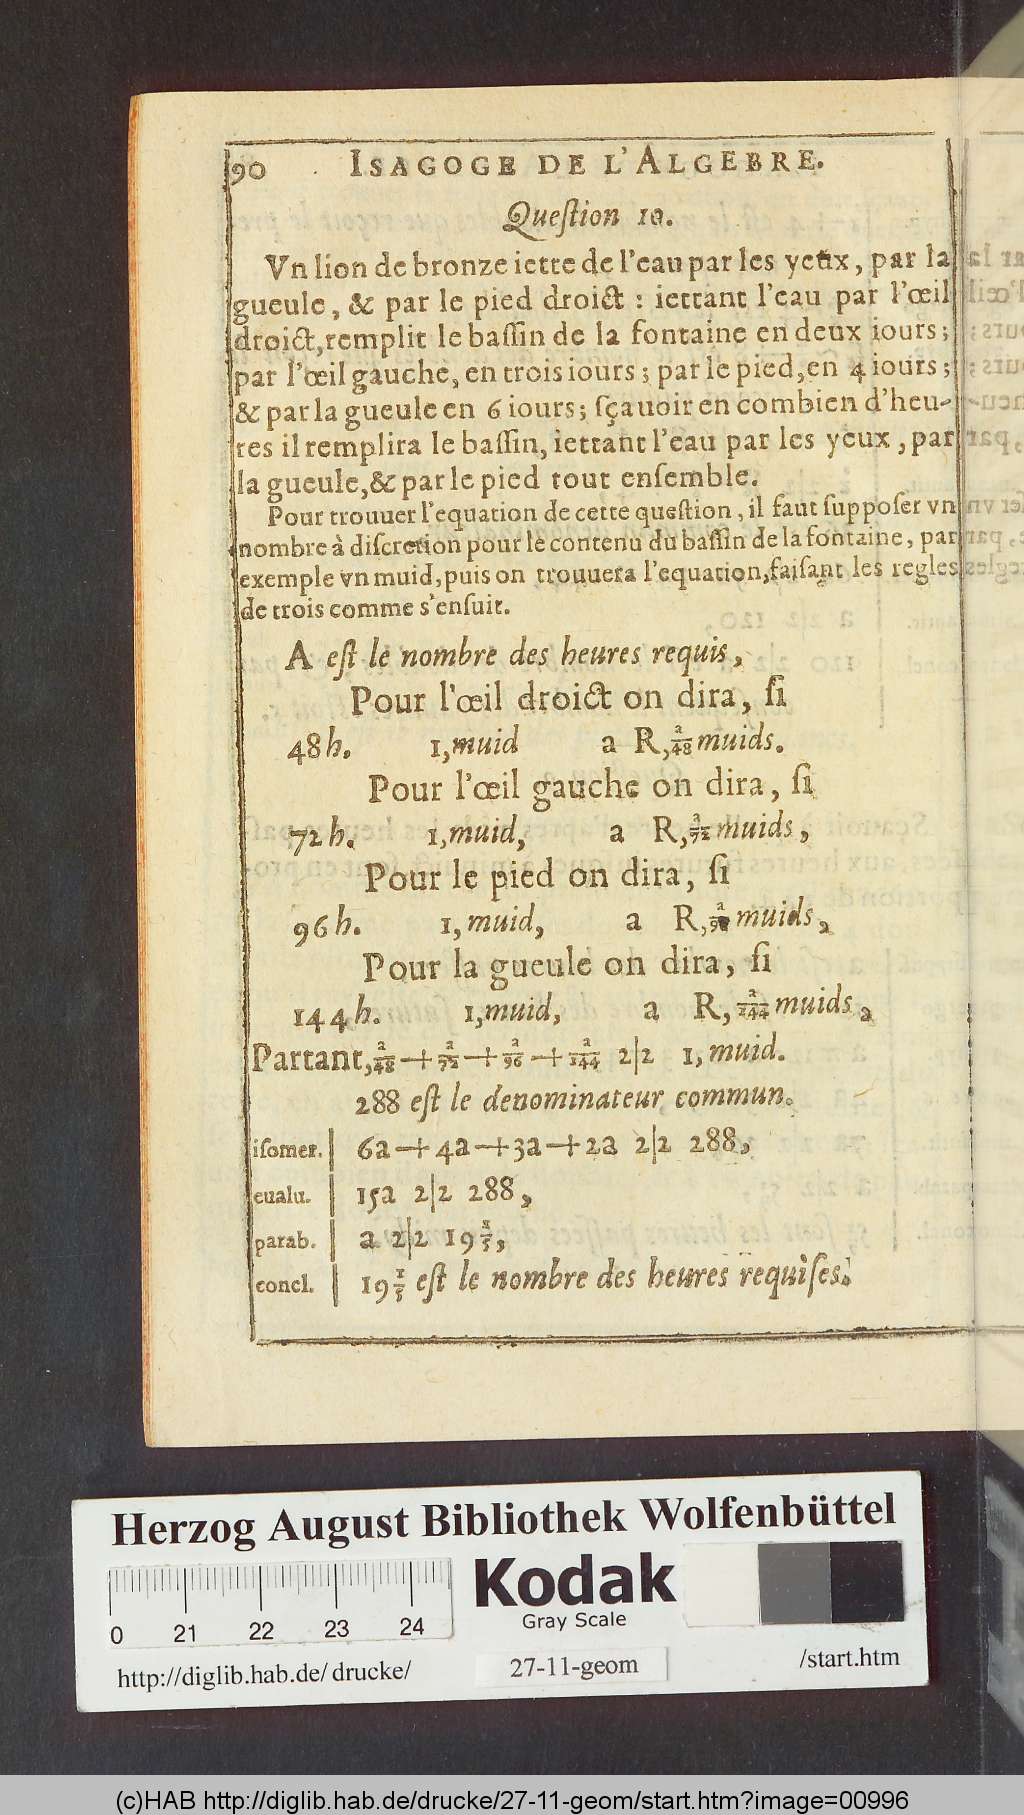 90 ISAGOGE DE L'ALGEBRE.
Queſtion 10.
Vn lion de bronze iette de l'eau par les yeux, par la
gueule, & par le pied droict : iettant l'eau par l'œil
droict, remplit le baſſin de la fontaine en deux iours;
par l'œil gauche, en trois iours; par le pied, en 4 iours;
& par la gueule en 6 iours; ſçauoir en combien d'heu-
res il remplira le baſſin, iettant l'eau par les yeux, par
la gueule, & par le pied tout enſemble.
Pour trouuer l'equation de cette queſtion, il faut ſuppoſer vn
nombre à diſcretion pour le contenu du baſſin de la fontaine, par
exemple vn muid, puis on trouuera l'equation, faiſant les regles
de trois comme s'enſuit.
A eſt le nombre des heures requis,
Pour l'œil droict on dira, ſi
48 h. 1, muid a R, a/48 muids.
Pour l'œil gauche on dira, ſi
72 h. 1, muid, a R, a/72 muids,
Pour le pied on dira, ſi
96 h. 1, muid, a R, a/96 muids,
Pour la gueule on dira, ſi
144 h. 1, muid, a R, a/144 muids,
Partant, a/48 + a/72 + a/96 + a/144 2|2 1, muid.
288 eſt le denominateur commun.
iſomer. | 6a + 4a + 3a + 2a 2|2 288,
eualu. | 15a 2|2 288,
parab. | a 2|2 19 1/5,
concl. | 19 1/5 eſt le nombre des heures requiſes.
Herzog August Bibliothek Wolfenbüttel
Kodak
Gray Scale
0 21 22 23 24
http://diglib.hab.de/drucke/ 27-11-geom /start.htm
(c)HAB http://diglib.hab.de/drucke/27-11-geom/start.htm?image=00996